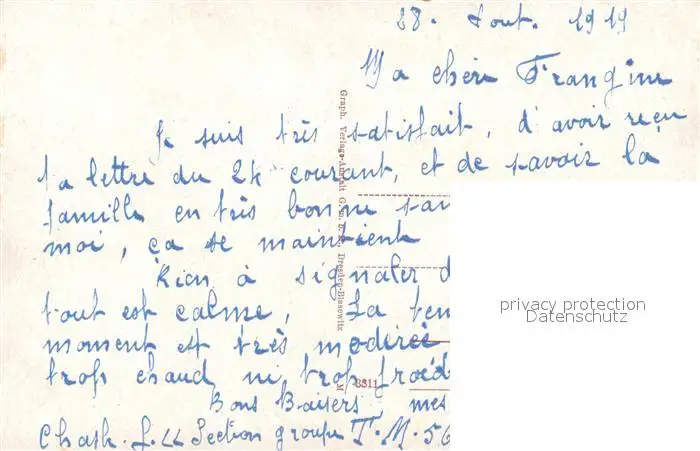 28. Aout. 1919
Ma chère Frangine
Je suis très satisfait, d'avoir reçu
ta lettre du 24 courant, et de savoir la
famille en très bonne san
moi, ça se maintient
Rien à signaler d
tout est calme, La tem
moment est très moderée
trop chaud ni trop froid
Bons Baisers, mes
Section groupe T.M. 56
Graph. Verlags-Anstalt G. m. b. H., Dresden-Blasewitz
M 3811
privacy protection
Datenschutz